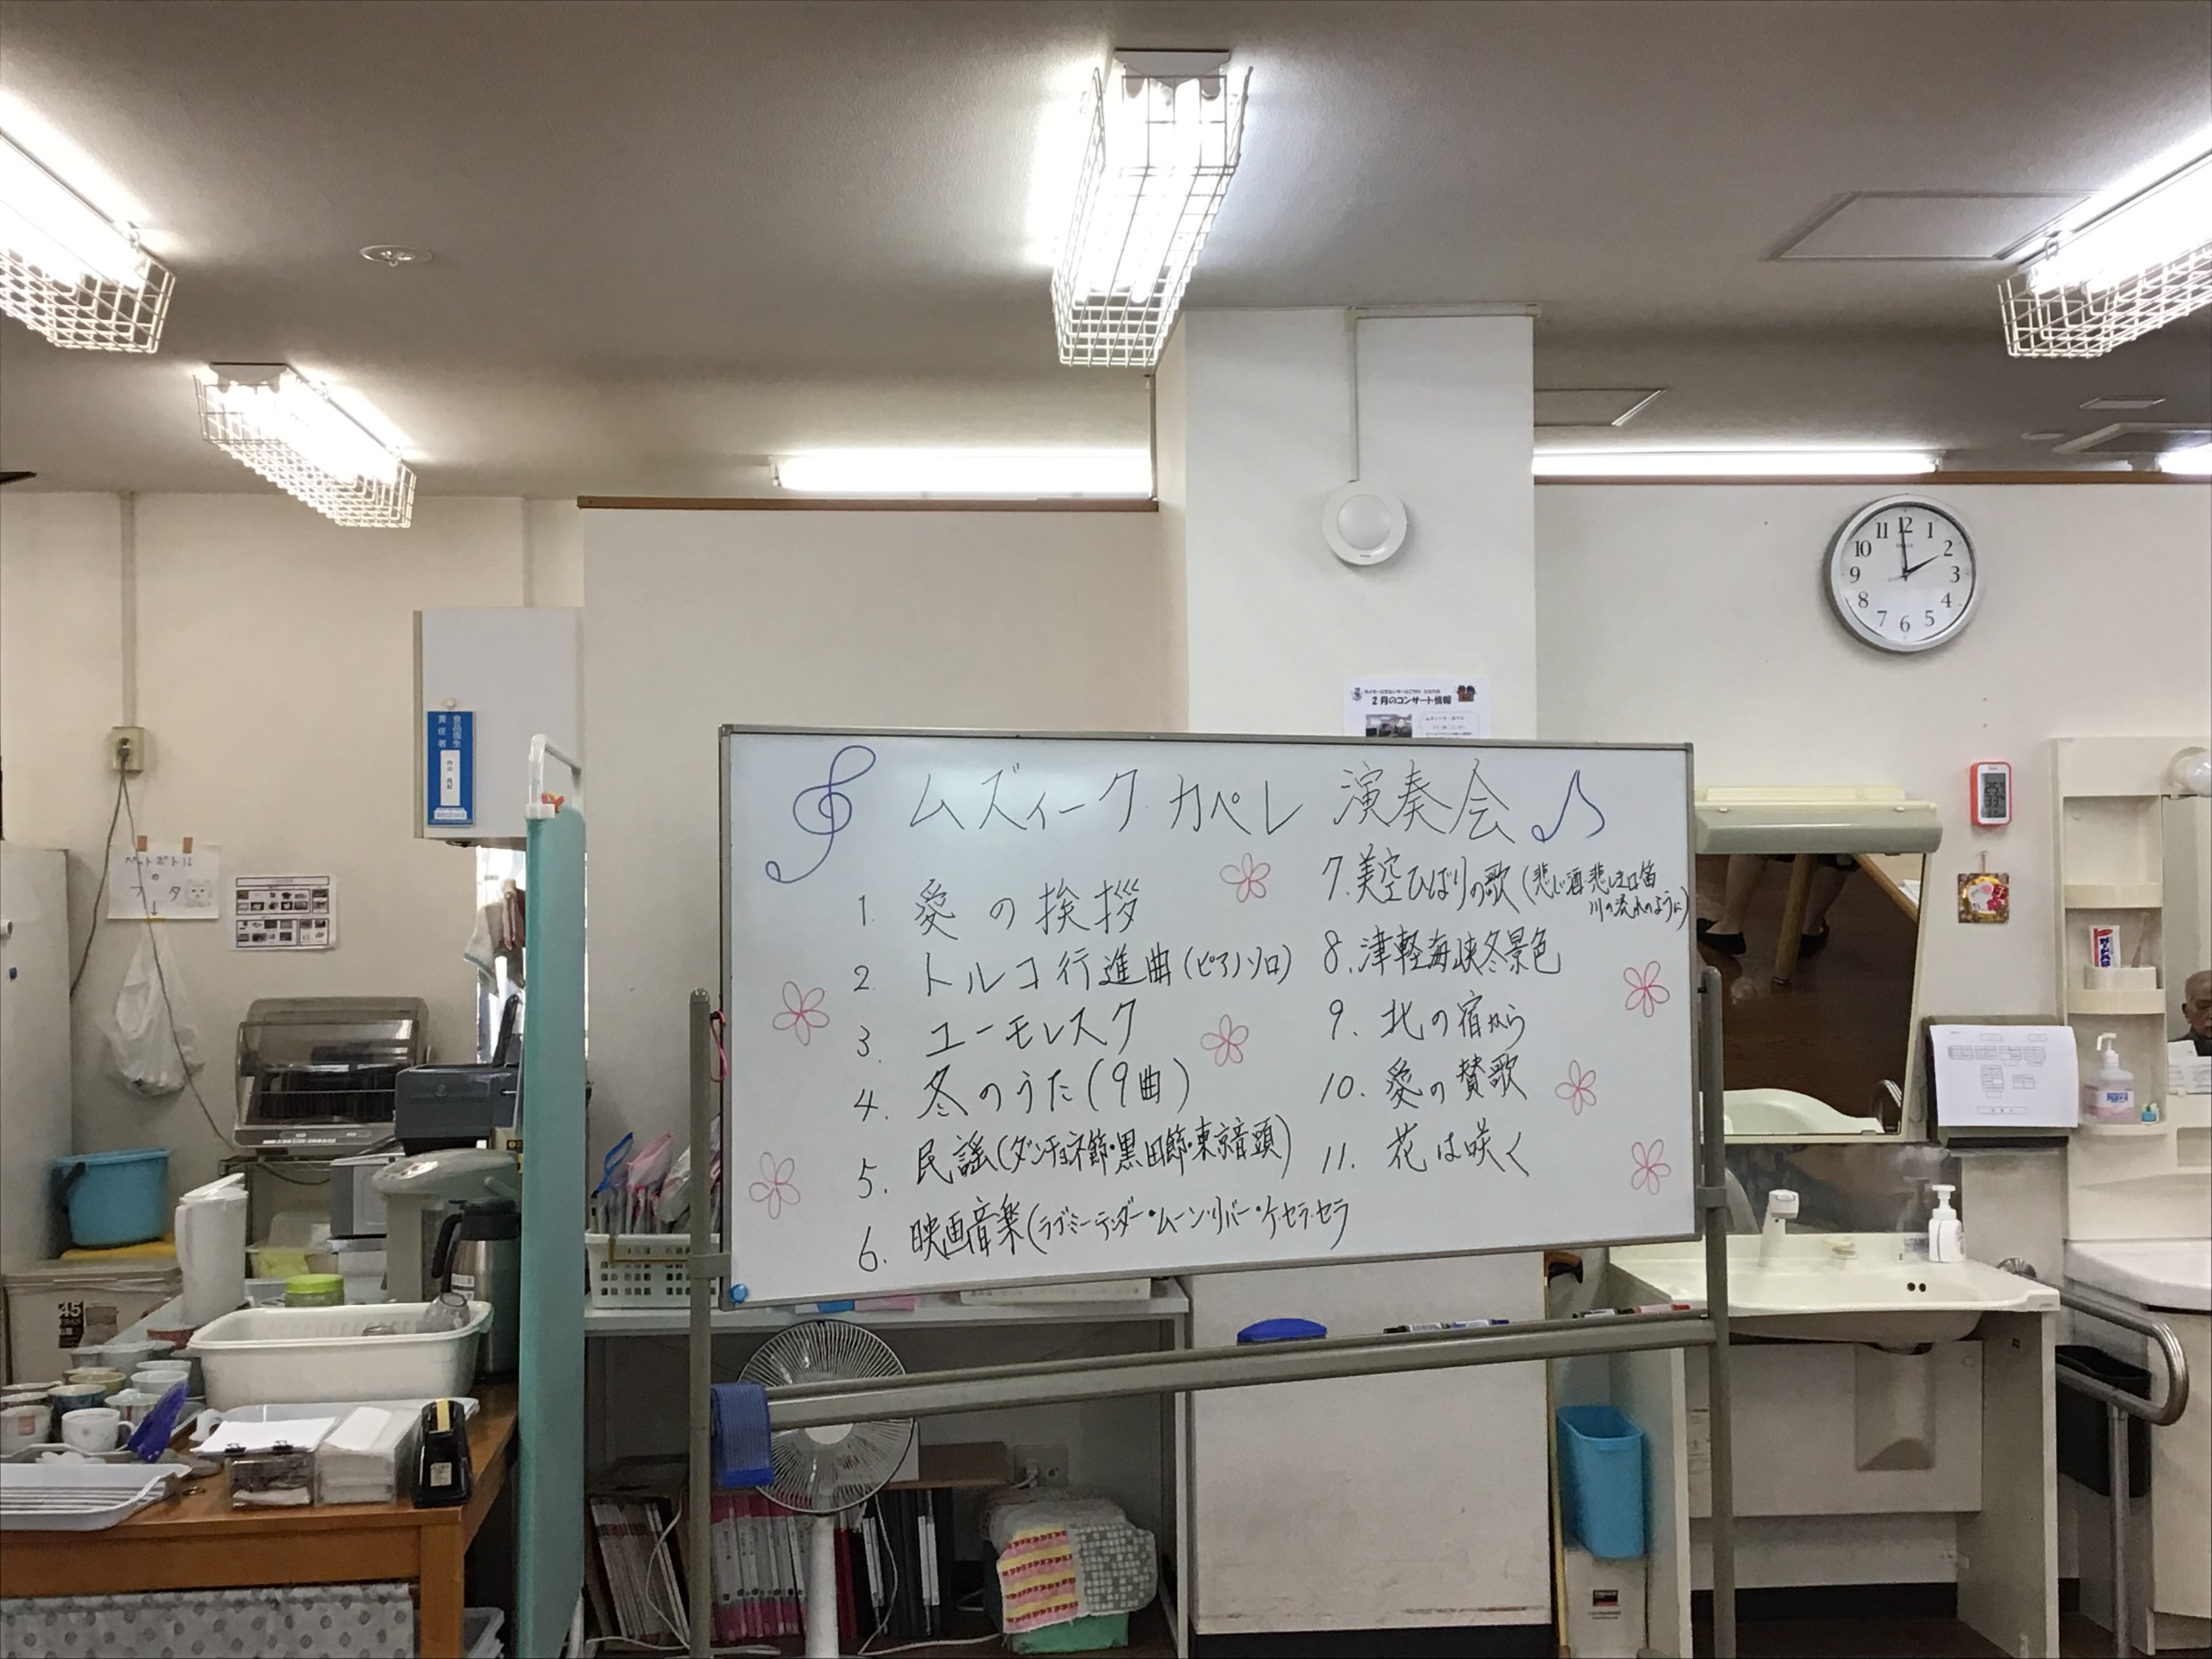 ムズィーク カペレ 演奏会
1. 愛の挨拶
2. トルコ行進曲(ピアノソロ)
3. ユーモレスク
4. 冬のうた(9曲)
5. 民謡(ダンチョネ節・黒田節・東京音頭)
6. 映画音楽(ラブ・ミー・テンダー・ムーン・リバー・ケ・セラ・セラ
7. 美空ひばりの歌(悲しい酒・悲しき口笛
川の流れのように)
8. 津軽海峡冬景色
9. 北の宿から
10. 愛の賛歌
11. 花は咲く
2月のコンサート情報
食品衛生
責任者
ペットボトル
の
フタ
↓
11 12 1
10 2
9 3
8 4
7 6 5
45